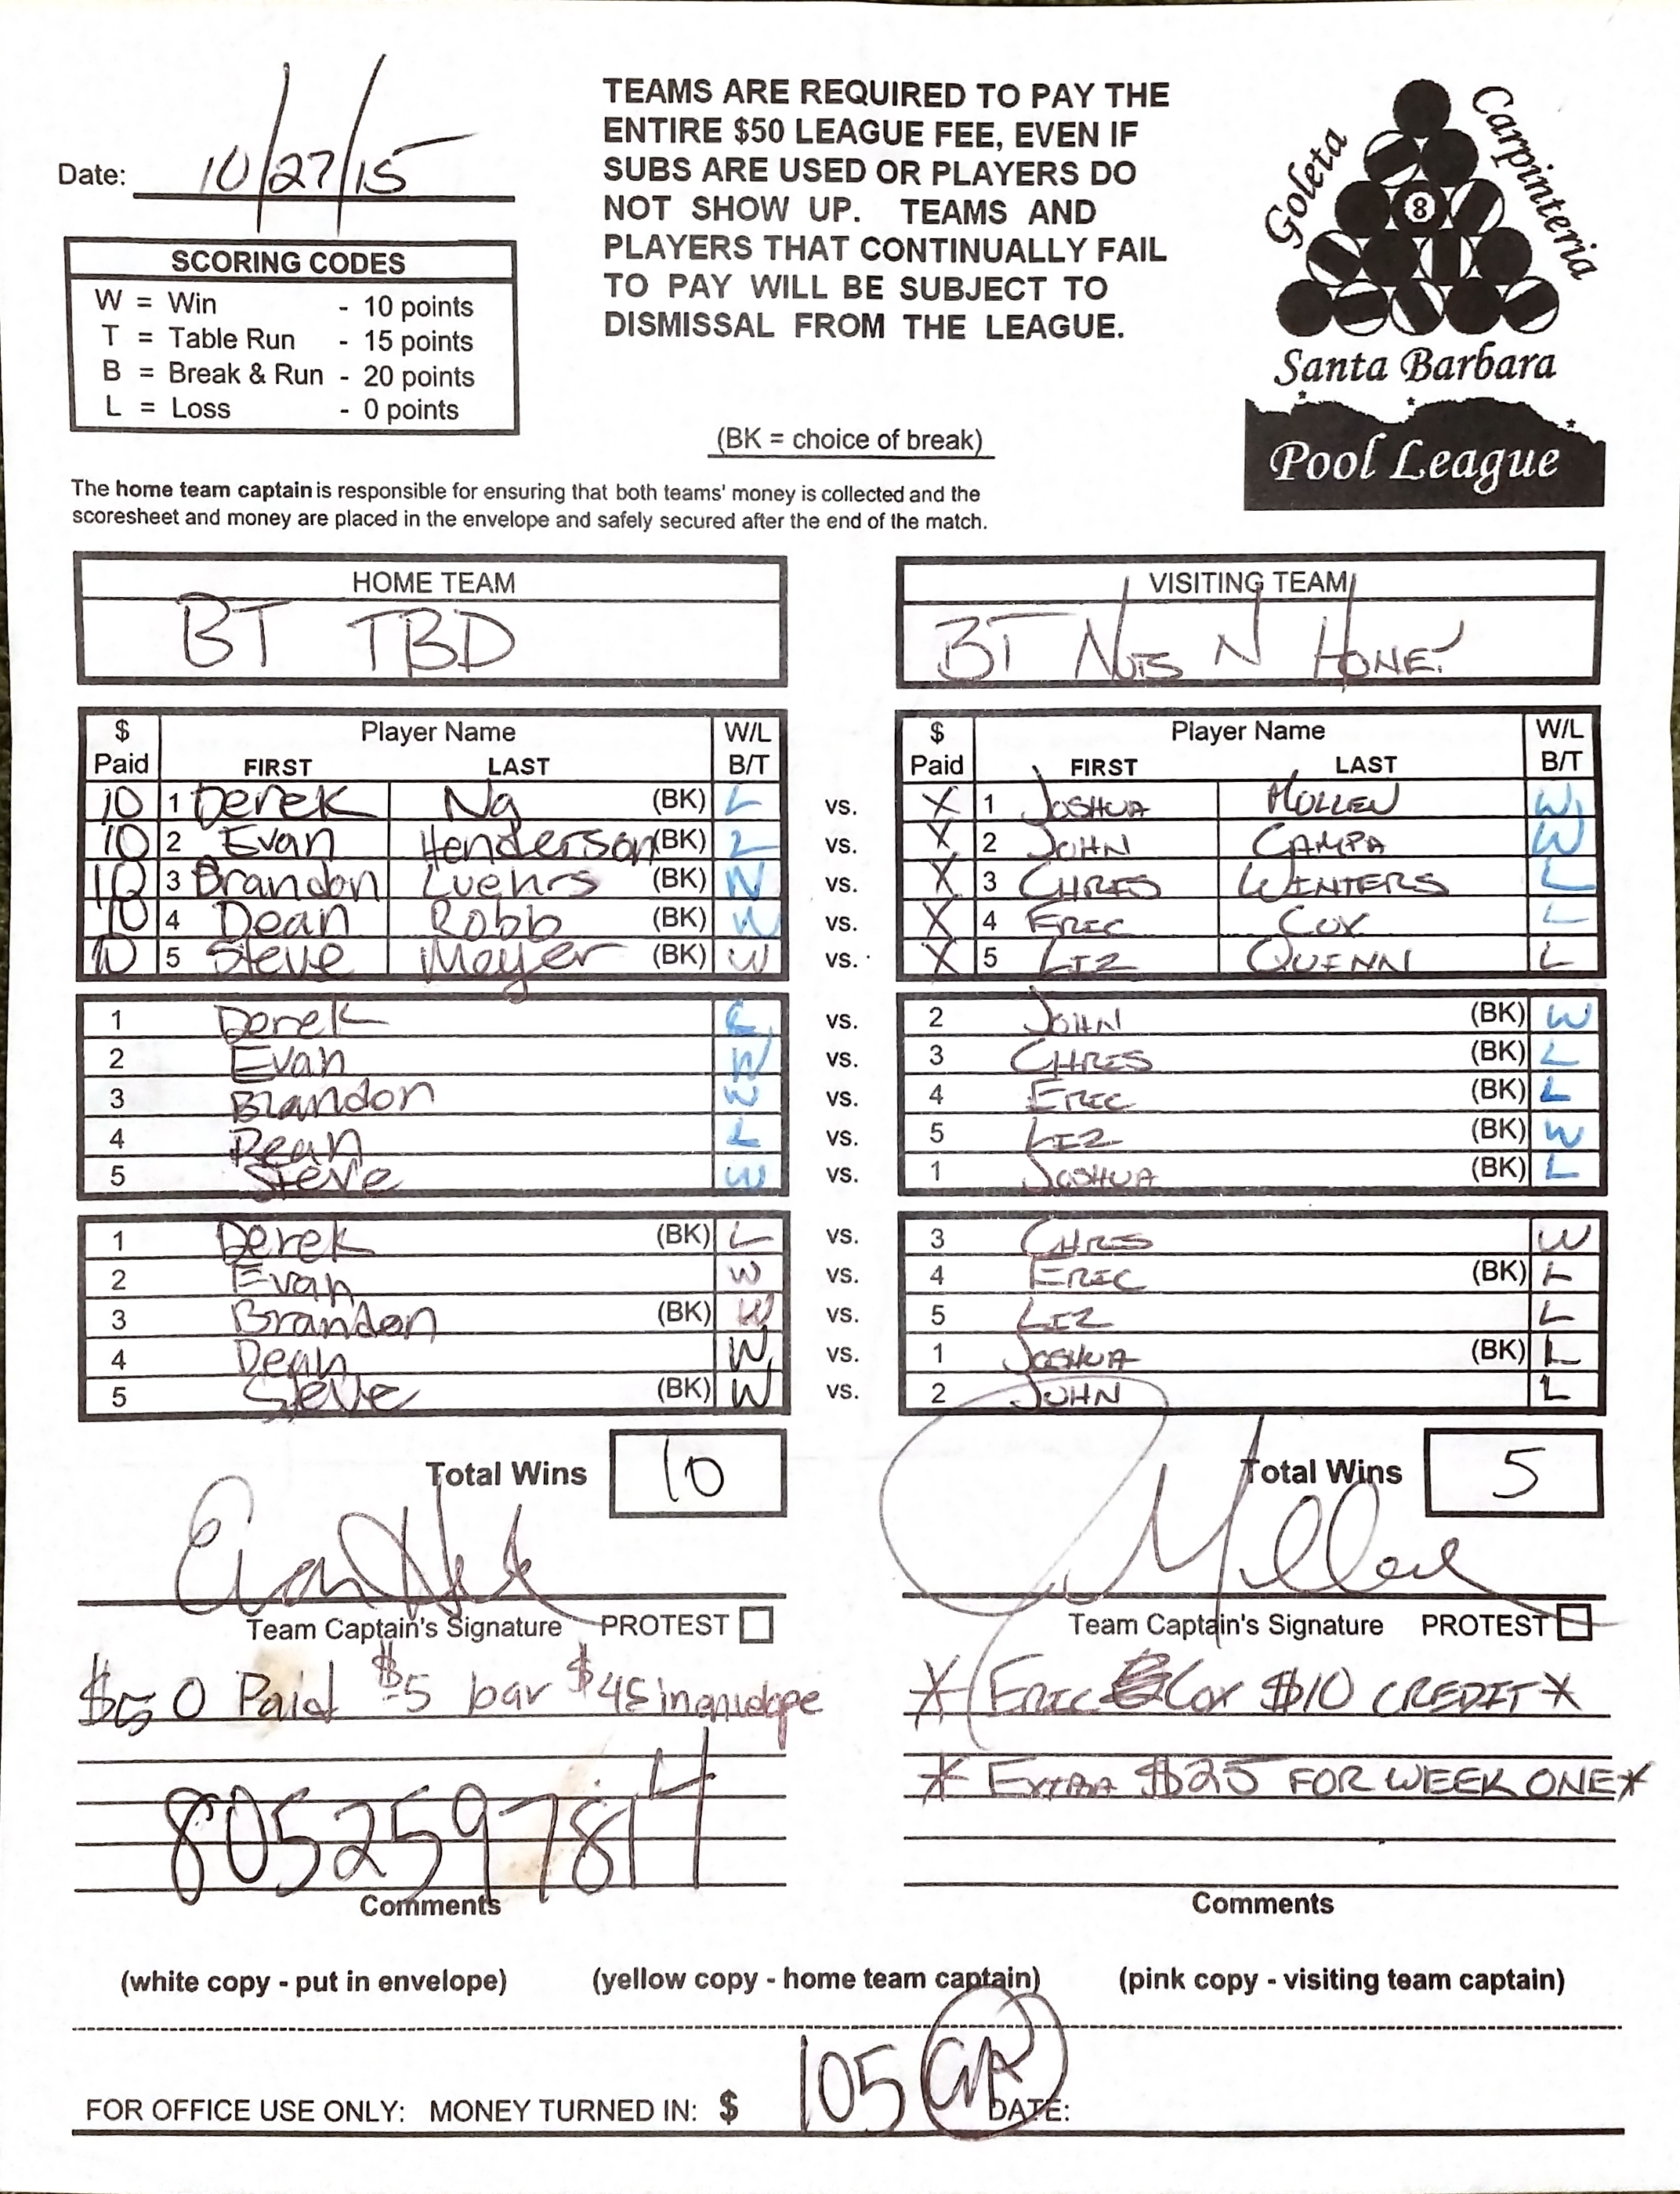 Date: 10/27/15
TEAMS ARE REQUIRED TO PAY THE
ENTIRE $50 LEAGUE FEE, EVEN IF
SUBS ARE USED OR PLAYERS DO
NOT SHOW UP. TEAMS AND
PLAYERS THAT CONTINUALLY FAIL
TO PAY WILL BE SUBJECT TO
DISMISSAL FROM THE LEAGUE.
Goleta
Carpinteria
8
Santa Barbara
Pool League
SCORING CODES
W = Win - 10 points
T = Table Run - 15 points
B = Break & Run - 20 points
L = Loss - 0 points
(BK = choice of break)
The home team captain is responsible for ensuring that both teams' money is collected and the
scoresheet and money are placed in the envelope and safely secured after the end of the match.
HOME TEAM VISITING TEAM
BT TBD BT NUTS N HONEY
$ Paid Player Name FIRST LAST W/L B/T $ Paid Player Name FIRST LAST W/L B/T
10 1 Derek Ng (BK) L vs. X 1 JOSHUA MOLLEN W
10 2 Evan Henderson (BK) L vs. X 2 JOHN CAMPA W
10 3 Brandon Luehrs (BK) W vs. X 3 CHRIS WINTERS L
10 4 Dean Robb (BK) W vs. X 4 ERIC COX L
10 5 Steve Mayer (BK) W vs. X 5 LIZ QUINN L
1 Derek L vs. 2 JOHN (BK) W
2 Evan W vs. 3 CHRIS (BK) L
3 Brandon W vs. 4 ERIC (BK) L
4 Dean L vs. 5 LIZ (BK) W
5 Steve W vs. 1 JOSHUA (BK) L
1 Derek (BK) L vs. 3 CHRIS W
2 Evan W vs. 4 ERIC (BK) L
3 Brandon (BK) W vs. 5 LIZ L
4 Dean W vs. 1 JOSHUA (BK) L
5 Steve (BK) W vs. 2 JOHN L
Total Wins 10 Total Wins 5
Team Captain's Signature PROTEST Team Captain's Signature PROTEST
$50 Paid $5 bar $45 in envelope * ERIC COX $10 CREDIT *
* EXTRA $25 FOR WEEK ONE *
8052597814
Comments Comments
(white copy - put in envelope) (yellow copy - home team captain) (pink copy - visiting team captain)
FOR OFFICE USE ONLY: MONEY TURNED IN: $ 105 DATE: